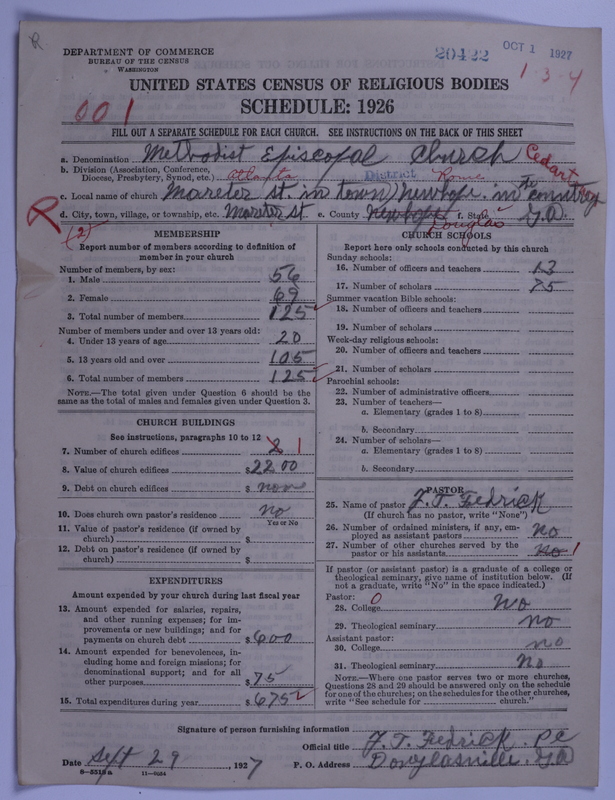 R
DEPARTMENT OF COMMERCE
BUREAU OF THE CENSUS
WASHINGTON
20422 OCT 1 1927
1-3-4
UNITED STATES CENSUS OF RELIGIOUS BODIES
SCHEDULE: 1926
001
FILL OUT A SEPARATE SCHEDULE FOR EACH CHURCH. SEE INSTRUCTIONS ON THE BACK OF THIS SHEET
a. Denomination Methodist Episcopal Church
b. Division (Association, Conference, Diocese, Presbytery, Synod, etc.) Atlanta District Rome
c. Local name of church in town) Newhope. in the country
d. City, town, village, or township, etc. e. County Newhope Douglas f. State GA.
R
(2)
MEMBERSHIP
Report number of members according to definition of
member in your church
Number of members, by sex:
1. Male 56
2. Female 69
3. Total number of members 125
Number of members under and over 13 years old:
4. Under 13 years of age 20
5. 13 years old and over 105
6. Total number of members 125
NOTE.—The total given under Question 6 should be the
same as the total of males and females given under Question 3.
CHURCH BUILDINGS
See instructions, paragraphs 10 to 12
7. Number of church edifices 2 1
8. Value of church edifices $2200
9. Debt on church edifices $ non
10. Does church own pastor's residence no
Yes or No
11. Value of pastor's residence (if owned by
church) $
12. Debt on pastor's residence (if owned by
church) $
EXPENDITURES
Amount expended by your church during last fiscal year
13. Amount expended for salaries, repairs,
and other running expenses; for im-
provements or new buildings; and for
payments on church debt $600
14. Amount expended for benevolences, in-
cluding home and foreign missions; for
denominational support; and for all
other purposes $75
15. Total expenditures during year $675
CHURCH SCHOOLS
Report here only schools conducted by this church
Sunday schools:
16. Number of officers and teachers 13
17. Number of scholars 75
Summer vacation Bible schools:
18. Number of officers and teachers
19. Number of scholars
Week-day religious schools:
20. Number of officers and teachers
21. Number of scholars
Parochial schools:
22. Number of administrative officers
23. Number of teachers—
a. Elementary (grades 1 to 8)
b. Secondary
24. Number of scholars—
a. Elementary (grades 1 to 8)
b. Secondary
PASTOR
25. Name of pastor J. T. Fedrick
(If church has no pastor, write "None")
26. Number of ordained ministers, if any, em-
ployed as assistant pastors No
27. Number of other churches served by the
pastor or his assistants no 1
If pastor (or assistant pastor) is a graduate of a college or
theological seminary, give name of institution below. (If
not a graduate, write "No" in the space indicated.)
Pastor: 0
28. College No
29. Theological seminary no
Assistant pastor:
30. College no
31. Theological seminary No
NOTE.—Where one pastor serves two or more churches,
Questions 28 and 29 should be answered only on the schedule
for one of the churches; on the schedules for the other churches,
write "See schedule for church."
Signature of person furnishing information
Official title J. T. Fedrick. PC
Date Sept 29, 1927 P. O. Address Douglasville. GA
8-5519a 11-8454